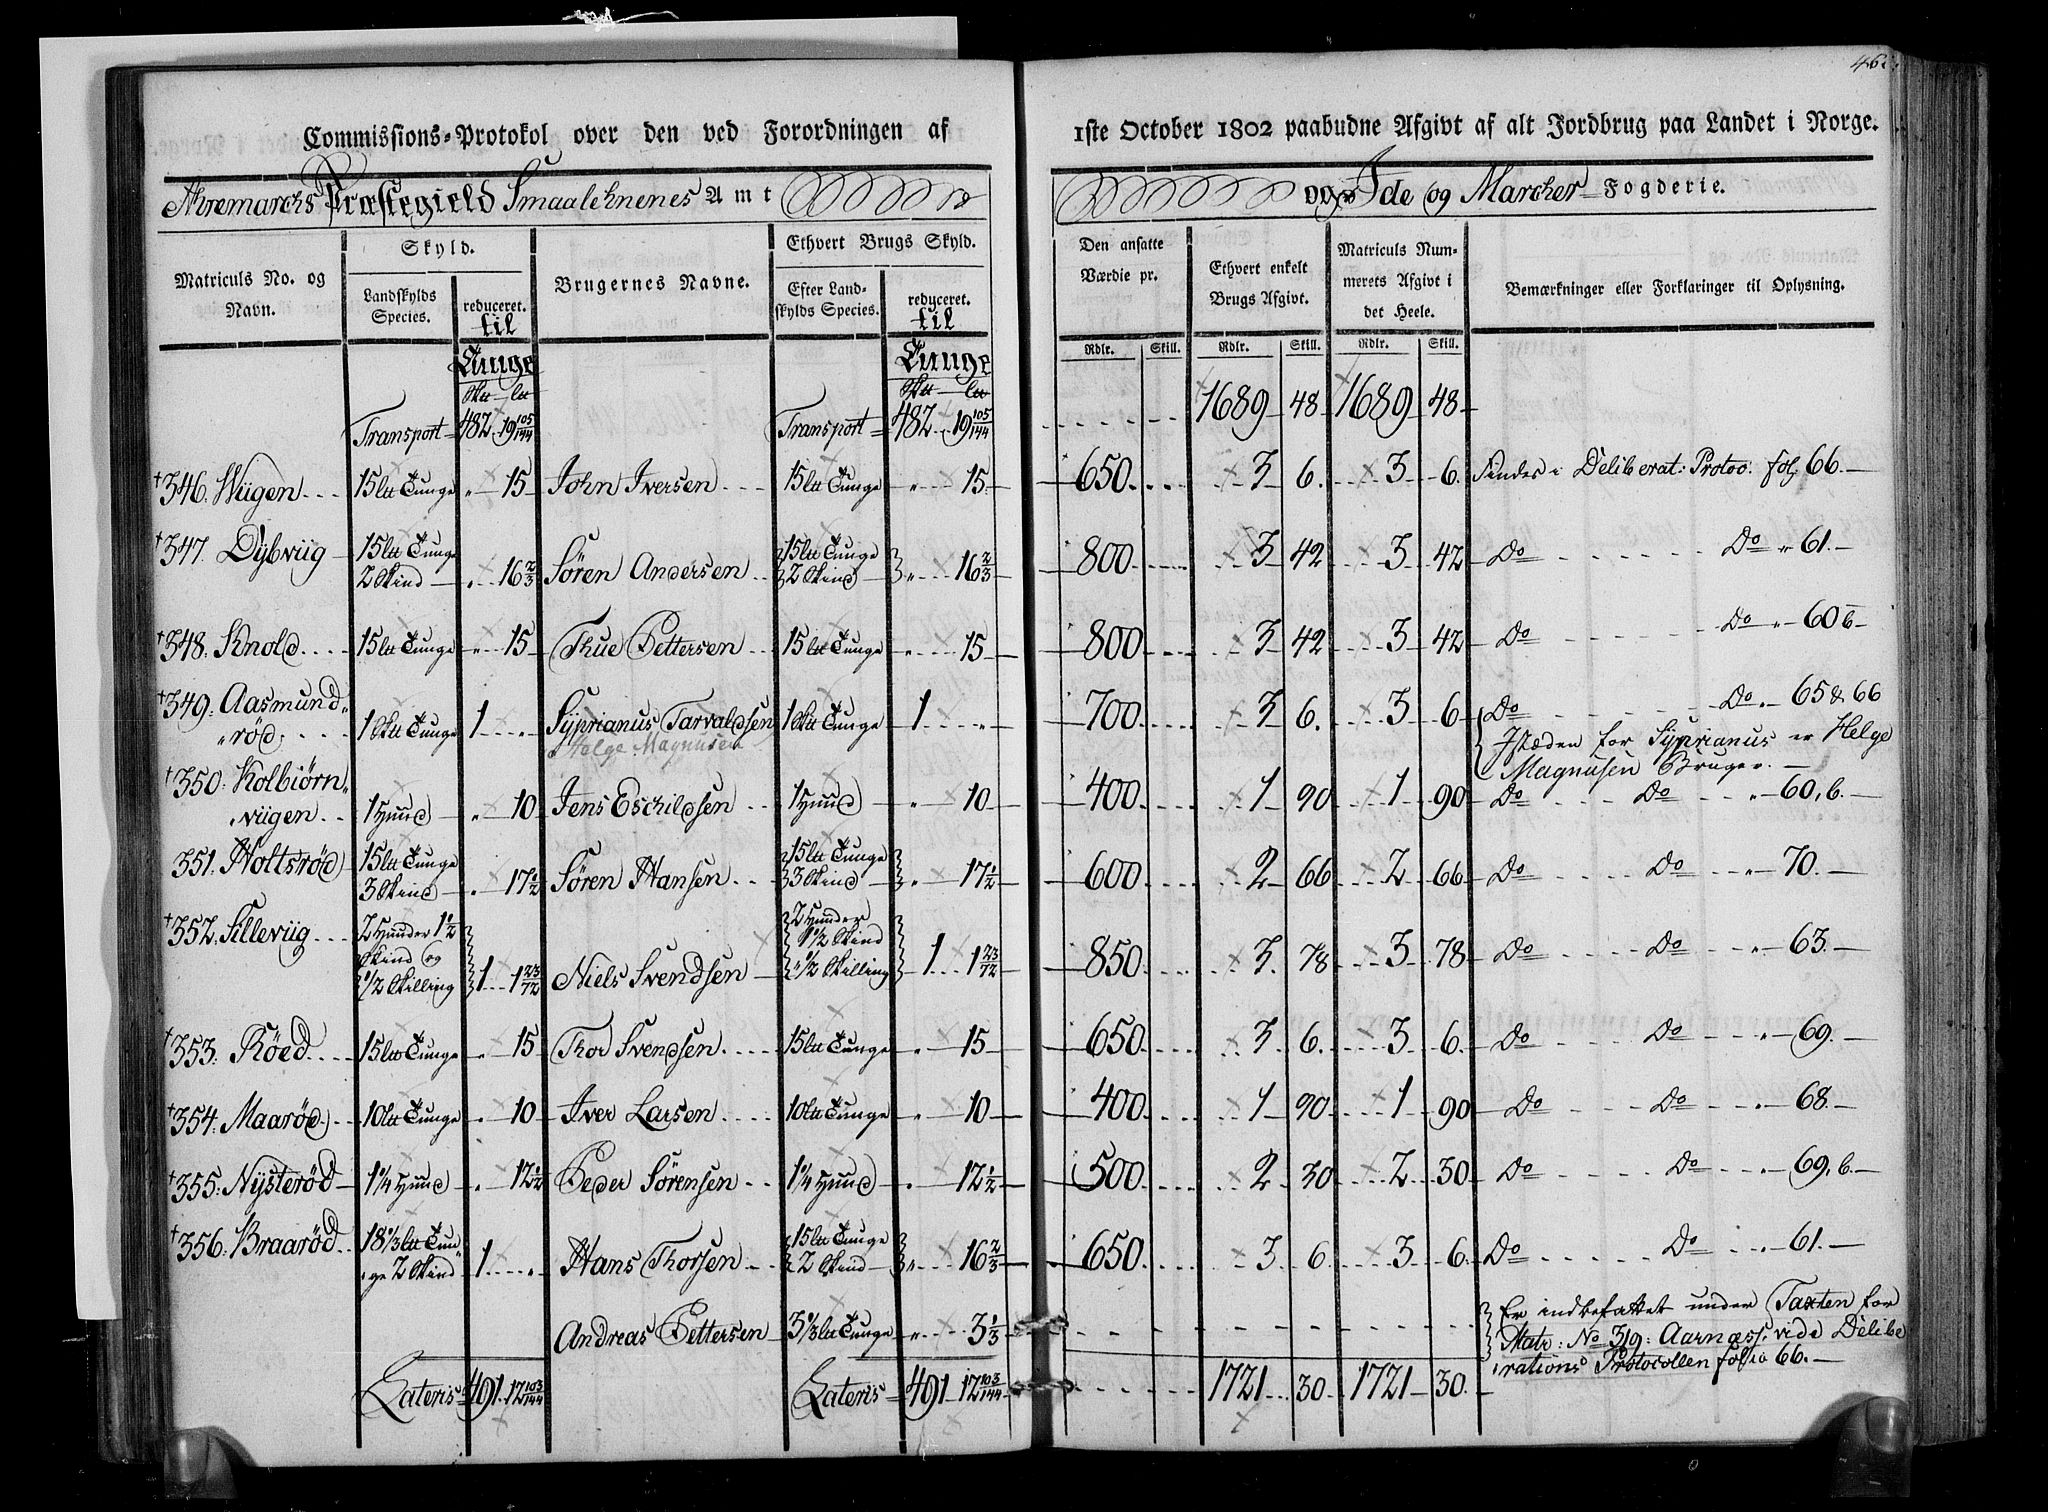 46.
Commissions-Protokol over den ved Forordningen af 1ste October 1802 paabudne Afgivt af alt Jordbrug paa Landet i Norge.
Præstegield Smaalehnenes Amt og Ide og Marcher Fogderie.
Matriculs No. og Navn.
Skyld.
Landskylds Species.
reduceret.
til
Tunge
Brugernes Navne.
Ethvert Brugs Skyld.
Efter Landskylds Species.
reduceret.
til
Tunge
Den ansatte Værdie pr.
Ethvert enkelt Brugs Afgivt.
Matriculs Nummerets Afgivt i det Heele.
Bemærkninger eller Forklaringer til Oplysning.
Rdlr. Skill. Rdlr. Skill. Rdlr. Skill.
Transport 482 19 105/144 Transport 482 19 105/144 1689 48 1689 48
346. Wiigen 15 Tunge " 15 John Iversen 15 Tunge " 15 650 3 6 3 6 Findes i Deliberat: Protoc. fol. 66.
347. Dybviig 15 Tunge 2 Skind " 16 2/3 Søren Andersen 15 Tunge 2 Skind " 16 2/3 800 3 42 3 42 Do Do " 61.
348. Knold 15 Tunge " 15 Thue Pettersen 15 Tunge " 15 800 3 42 3 42 Do Do " 60 b
349. Aasmund" "rød. 1 Tunge 1 " Syprianus Tarvaldsen 1 Tunge 1 " 700 3 6 3 6 Do Do 65 & 66
Helge Magnusen
Istæden for Syprianus er Helge
Magnusen Bruger.
350. Kolbiørn" "viigen 1 Huud " 10 Jens Eschildsen 1 Huud " 10 400 1 90 1 90 Do Do " 60, b.
351. Holtsrød 15 Tunge 3 Skind " 17 1/2 Søren Hansen 15 Tunge 3 Skind " 17 1/2 600 2 66 2 66 Do Do " 70.
352. Silleviig 2 Huuder 1 1/2 Skind og 1/2 Skilling 1 1 23/72 Niels Svendsen 2 Huuder 1 1/2 Skind 1/2 Skilling 1 1 23/72 850 3 78 3 78 Do Do " 63.
353. Röed 15 Tunge " 15 Thor Svendsen 15 Tunge " 15 650 3 6 3 6 Do Do " 69.
354. Maarød 10 Tunge " 10 Iver Larsen 10 Tunge " 10 400 1 90 1 90 Do Do " 68.
355. Nysterød 1 1/4 Huud " 12 1/2 Peder Sørensen 1 1/4 Huud " 12 1/2 500 2 30 2 30 Do Do 69, b.
356. Braarød 18 1/3 Tunge 2 Skind 1 " Hans Thorsen 15 Tunge 2 Skind " 16 2/3 650 3 6 3 6 Do Do " 61.
Andreas Pettersen 3 1/3 Tunge " 3 1/3 Er indbefattet under Taxten for
Matr: No 319: Aarnæss: vide Delibe
rations Protocollen folio 66.
Lateris 491 12 103/144 Lateris 491 12 103/144 1721 30 1721 30